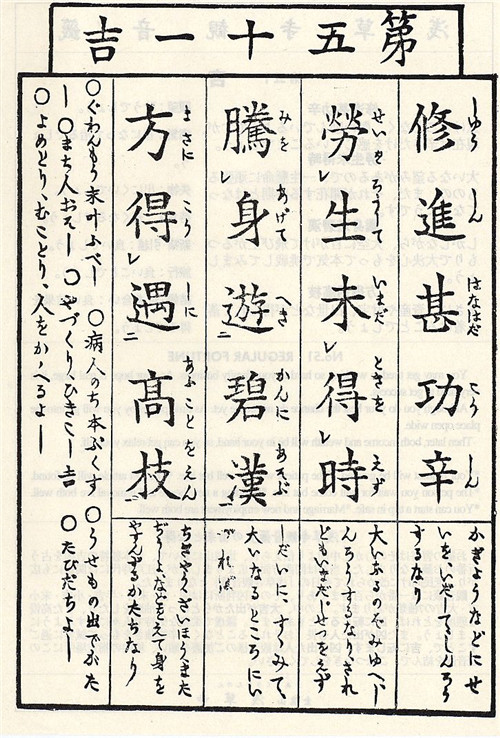 第五十一吉
修進甚功辛
しゆう しん はなはだ こう しん
勞生未得時
せいをらうして いまだ ときを えず
騰身遊碧漢
みを あげて へき かんに あそぶ
方得遇高枝
まさに こうしに あふことをえん
かぎようなどにせ
いをいだし しんろう
するなり
大いなるのぞみゆへ
しんろうすれ
どもいまだじせつをえず
しだいに、すゝみて、
大いなるところにい
づれば
ちぎやうざいほうまた
ぢうしよなどをえて身を
やすんずるかたちなり
〇ぐわんもう末叶ふべし 〇病人のち本ぷくす 〇うせもの出でがた
し 〇まち人おそし 〇やづくりひきこし吉 〇たびだちよし
〇よめとり、むことり、人をかゝへるよし